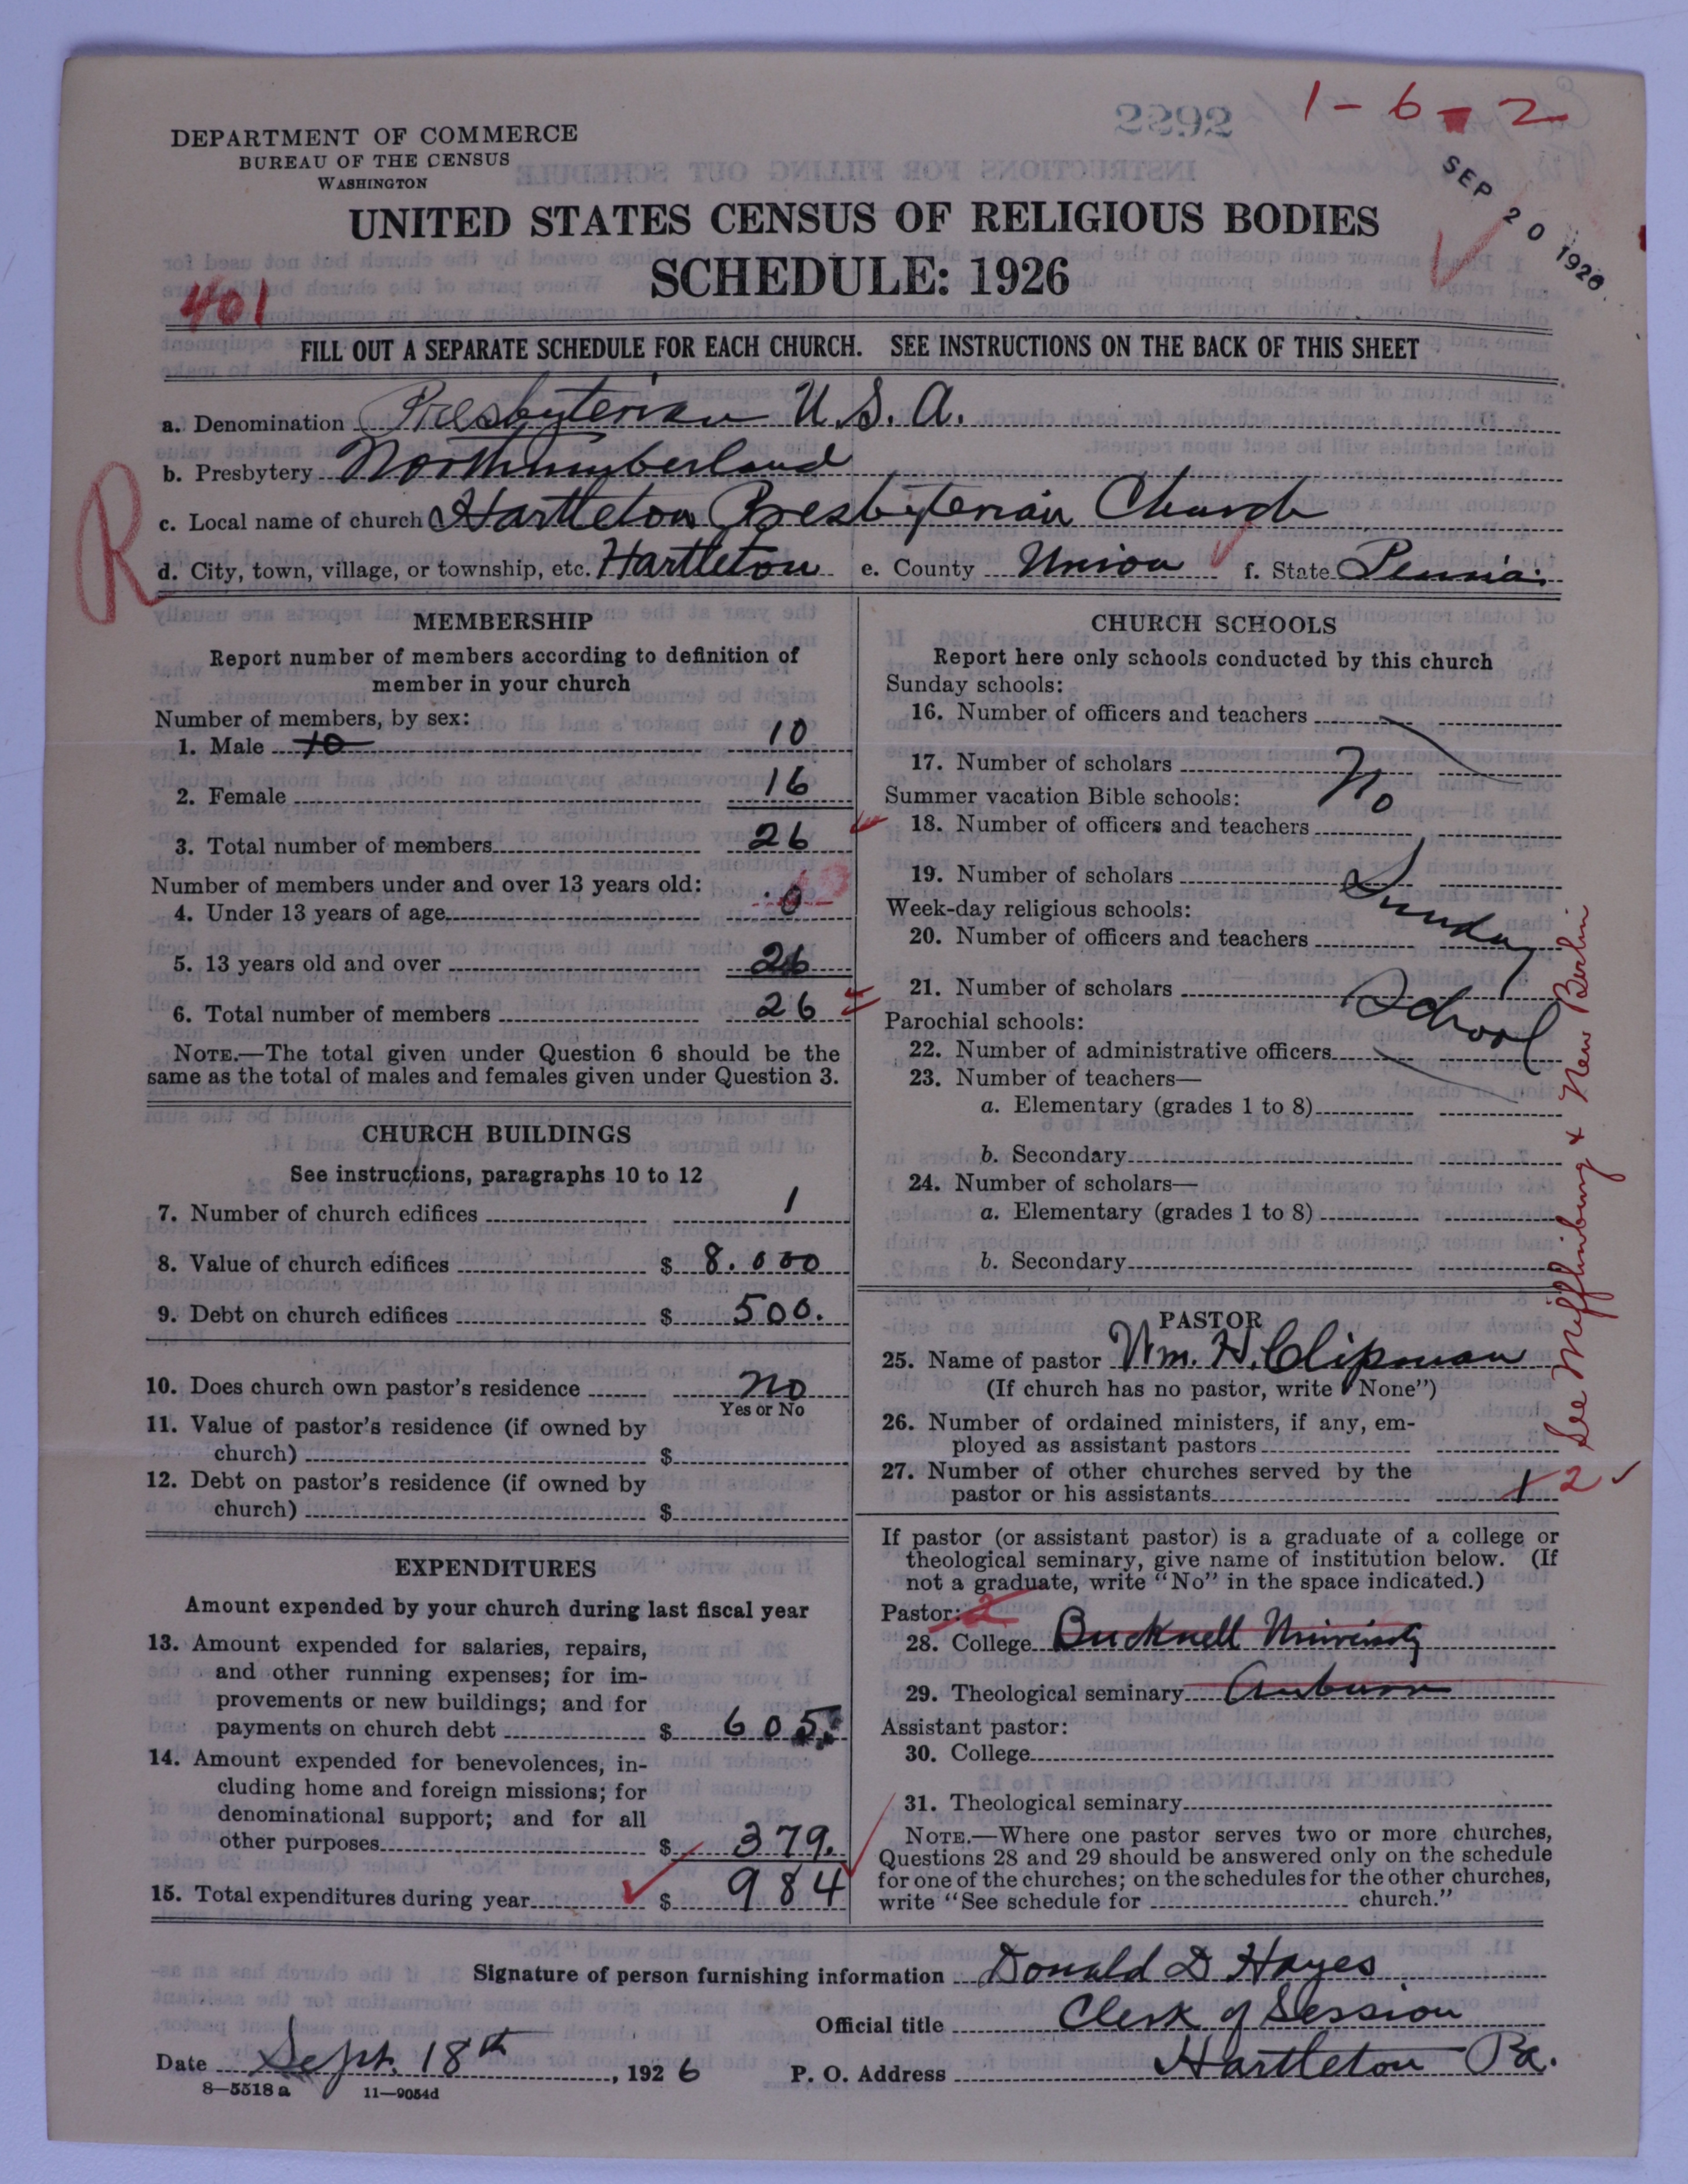 2292
1-6-2
SEP 20 1926
DEPARTMENT OF COMMERCE
BUREAU OF THE CENSUS
WASHINGTON
UNITED STATES CENSUS OF RELIGIOUS BODIES
SCHEDULE: 1926
401
FILL OUT A SEPARATE SCHEDULE FOR EACH CHURCH. SEE INSTRUCTIONS ON THE BACK OF THIS SHEET
a. Denomination Presbyterian U.S.A.
b. Presbytery Northumberland
R
c. Local name of church Hartleton Presbyterian Church
d. City, town, village, or township, etc. Hartleton e. County Union f. State Penna.
MEMBERSHIP
Report number of members according to definition of
member in your church
Number of members, by sex:
1. Male 10 10
2. Female 16
3. Total number of members 26
Number of members under and over 13 years old:
4. Under 13 years of age 0
5. 13 years old and over 26
6. Total number of members 26
NOTE.—The total given under Question 6 should be the
same as the total of males and females given under Question 3.
CHURCH BUILDINGS
See instructions, paragraphs 10 to 12
7. Number of church edifices 1
8. Value of church edifices $ 8.000
9. Debt on church edifices $ 500.
10. Does church own pastor's residence no
Yes or No
11. Value of pastor's residence (if owned by
church) $
12. Debt on pastor's residence (if owned by
church) $
EXPENDITURES
Amount expended by your church during last fiscal year
13. Amount expended for salaries, repairs,
and other running expenses; for im-
provements or new buildings; and for
payments on church debt $ 605.
14. Amount expended for benevolences, in-
cluding home and foreign missions; for
denominational support; and for all
other purposes $ 379.
15. Total expenditures during year $ 984
CHURCH SCHOOLS
Report here only schools conducted by this church
Sunday schools:
16. Number of officers and teachers
17. Number of scholars
No
Summer vacation Bible schools:
18. Number of officers and teachers
19. Number of scholars
Sunday
Week-day religious schools:
20. Number of officers and teachers
21. Number of scholars
School
Parochial schools:
22. Number of administrative officers
23. Number of teachers—
a. Elementary (grades 1 to 8)
b. Secondary
24. Number of scholars—
a. Elementary (grades 1 to 8)
b. Secondary
PASTOR
25. Name of pastor Wm. H. Clipman
(If church has no pastor, write "None")
26. Number of ordained ministers, if any, em-
ployed as assistant pastors
27. Number of other churches served by the
pastor or his assistants 1 2
See Mifflinburg & New Berlin
If pastor (or assistant pastor) is a graduate of a college or
theological seminary, give name of institution below. (If
not a graduate, write "No" in the space indicated.)
Pastor: 2
28. College Bucknell University
29. Theological seminary Auburn
Assistant pastor:
30. College
31. Theological seminary
NOTE.—Where one pastor serves two or more churches,
Questions 28 and 29 should be answered only on the schedule
for one of the churches; on the schedules for the other churches,
write "See schedule for church."
Signature of person furnishing information Donald D Hayes
Official title Clerk of Session
Date Sept. 18th, 1926 P. O. Address Hartleton Pa.
8—5518a 11—9054d